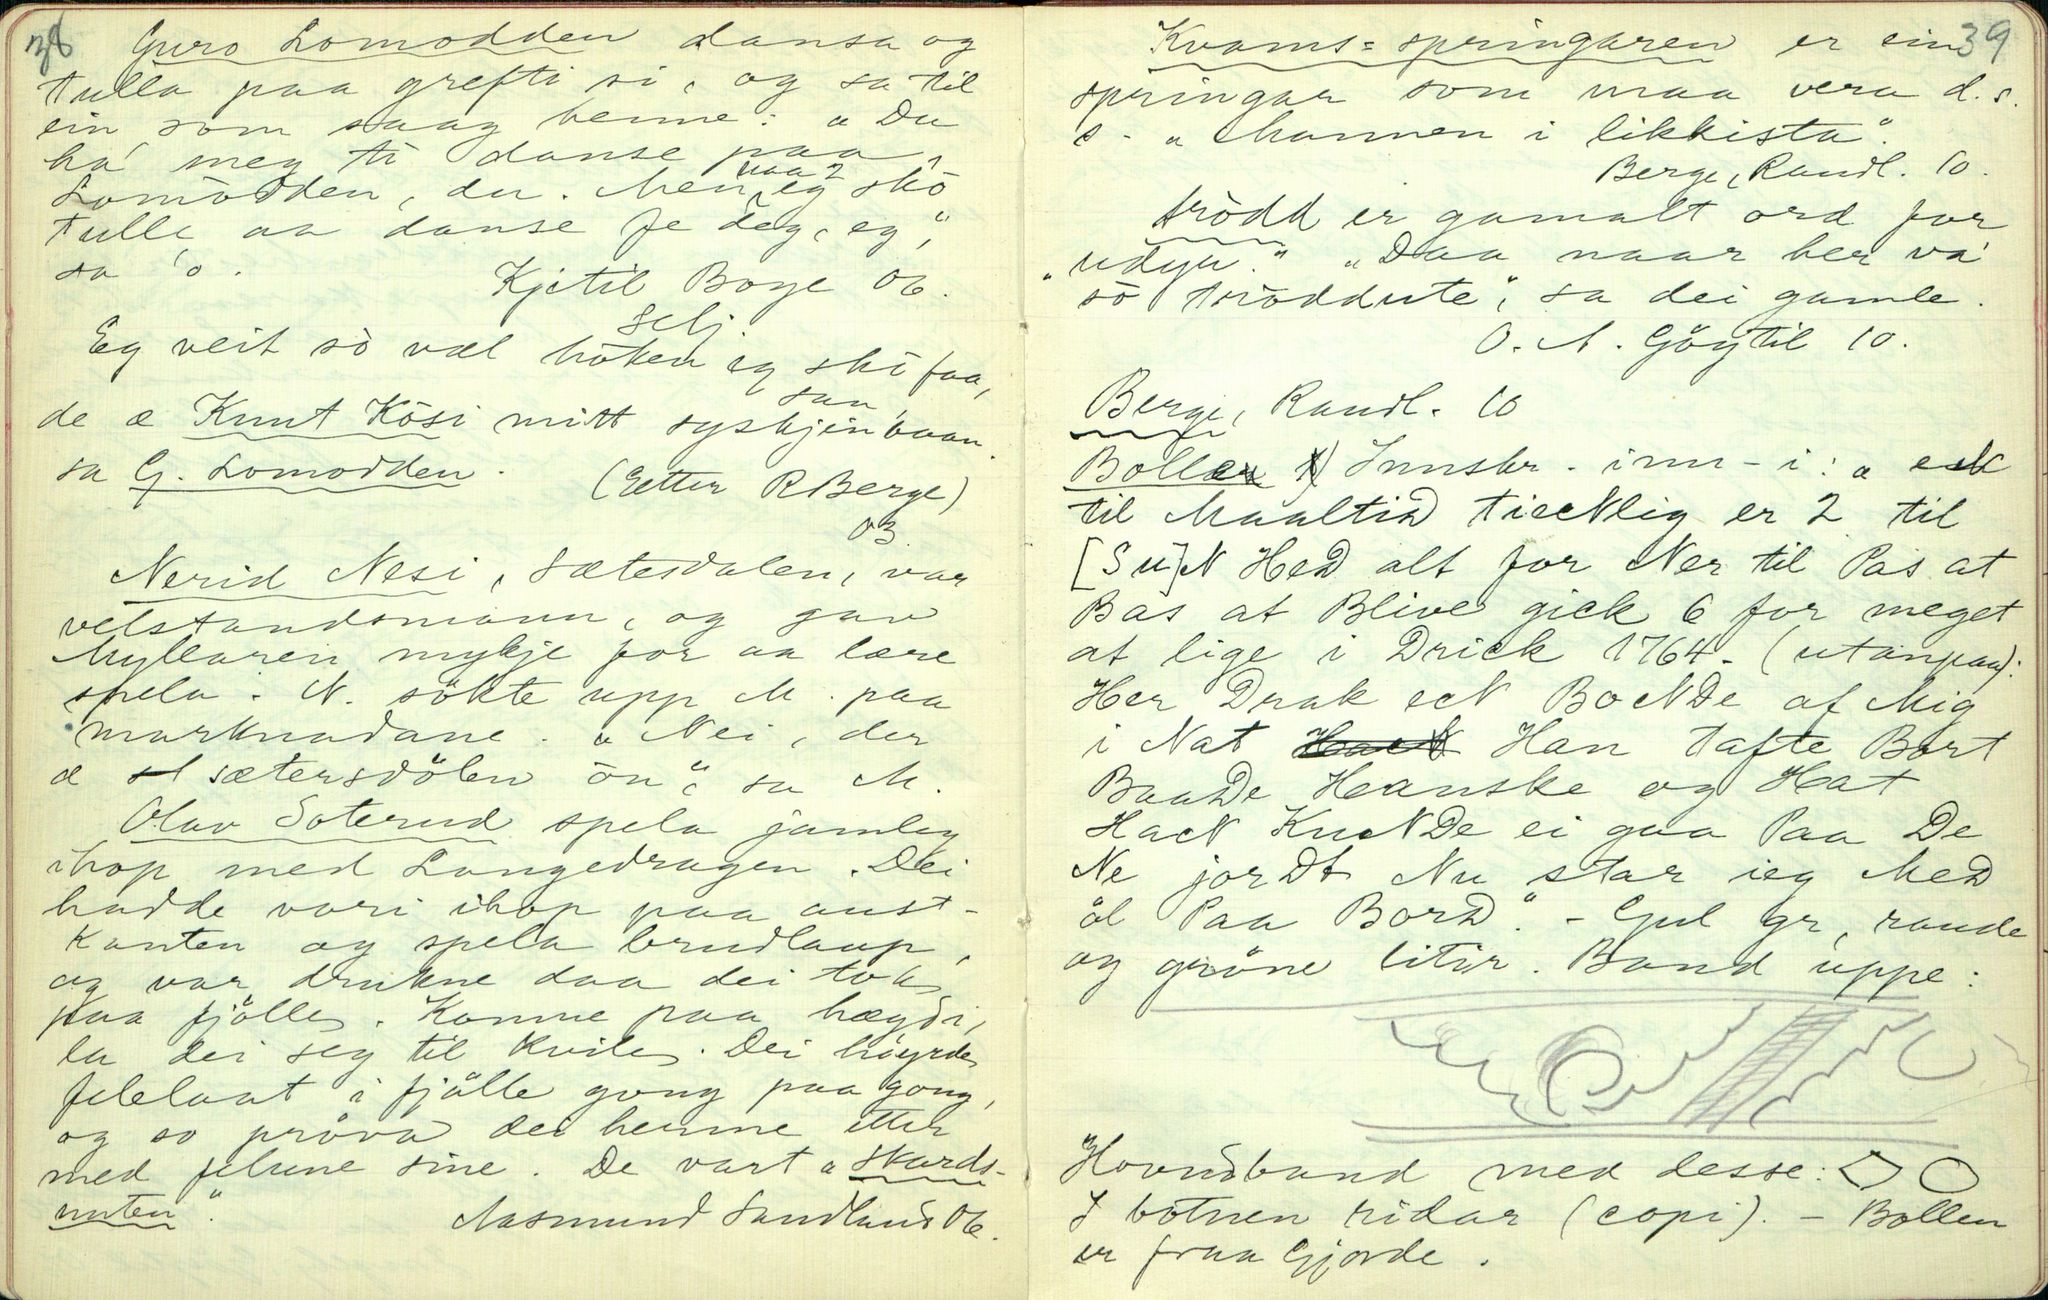 38
Guro Lomodden dansa og
tulla paa grefti si, og sa til
ein som saag henne: „Du
ha' meg ti danse paa
Lomodden, du. Men naa eg skò
tulle aa danse fe dèg, eg",
sa 'o.
Kjetil Boge 06.
Selj.
Eg veit sò væl hòken eg skò faa,
de æ Knut Kösi mitt syskjinbaan
san
sa G. Lomodden.
(Etter RBerge)
03.
Nerid Nesi, Sætesdalen, var
velstandsmann, og gav
Myllaren mykje for aa lære
spela. N. sökte upp M. paa
marknadane. „Nei, der
æ sætersdölen òn", sa M.
Olav Soterud spela jamleg
ihop med Langedragen. Dei
hadde vori ihop paa aust-
kanten og spela brudlaup,
og var drukne daa dei tok
paa fjölle. Komne paa hægdi,
la dei seg til kvile. Dei höyrde
felelaat i fjölle gong paa gong,
og so pröva dei herme etter
med felune sine. De vart „Skards-
nuten".
Aasmund Sandland 06.
39
Kvams-springaren er ein
springar som maa vera d. s.
s. „Mannen i likkista".
Berge, Raudl. 10.
tròdd er gamalt ord for
„udyr." „Daa naar her va'
sò tròddute", sa dei gamle.
O. N. Gögtil 10.
Berge, Raudl. 10
Bolle 1) Innskr. inn-i: „
til Maaltid TieNlig er 2 til
[Su]N HeD alt for Ner til Pas at
Bas at Blive gick 6 for meget
at lige i Drick 1764. (utanpaa):
Her Drak eN BoNDe af Mig
i Nat Han tafte Bort
BaaDe Hanske og Hat
HaN KuNDe ei gaa Paa De
Ne jordt Nu star ieg MeD
öl Paa BorD". - Gul gr, raude
og gröne litir. Band uppe:
Hovudband med desse:
I botnen ridar (copi). - Bollen
er fraa Gjorde.